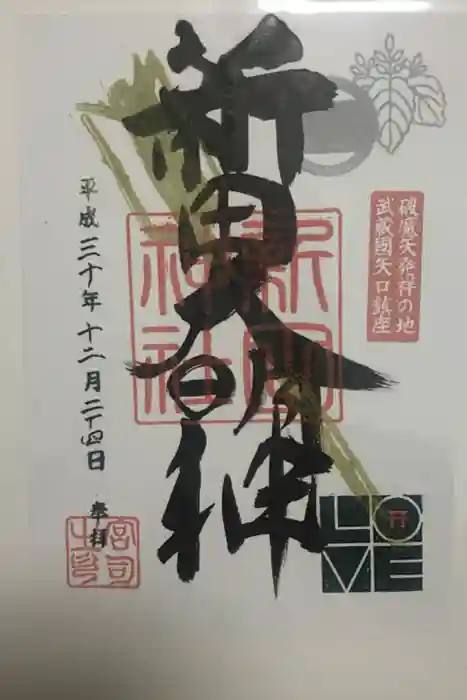 破魔矢発祥の地
武蔵國矢口鎮座
新田大明神
新田
神社
平成三十年十二月二十四日
奉拝
宮司
之印
LOVE